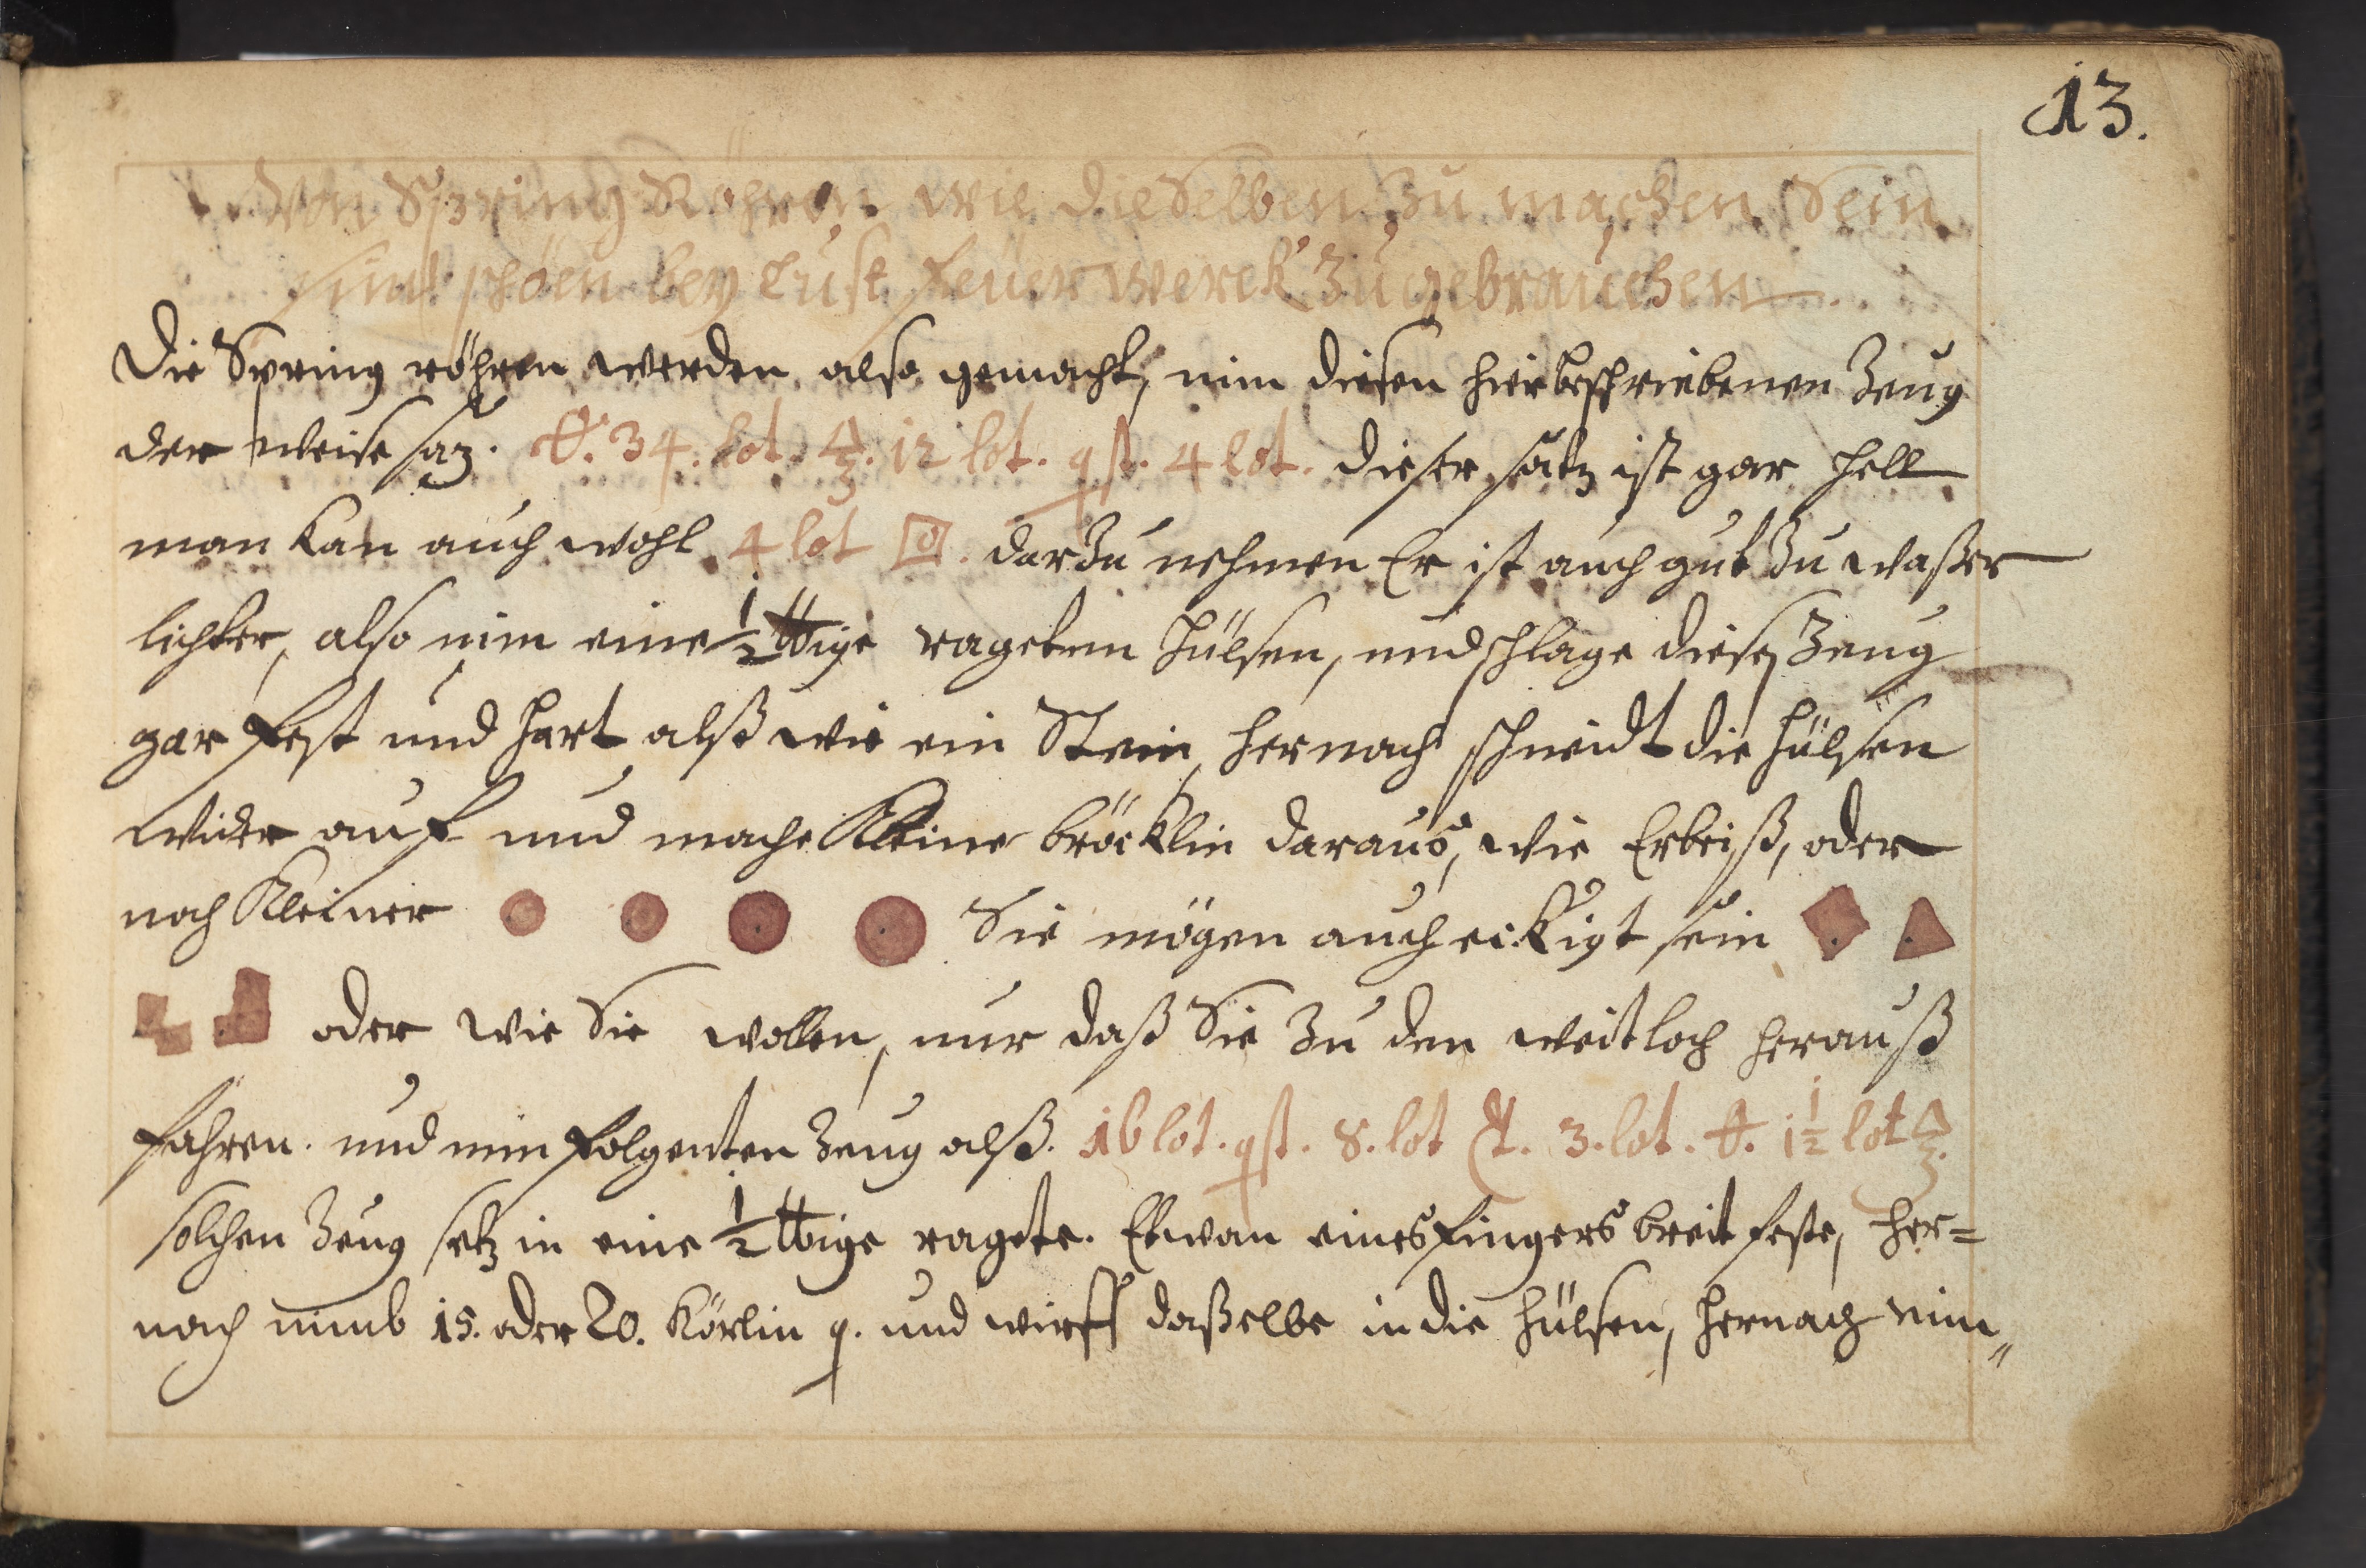 13.
Von Spring Röhren wie dieselben zu machen sein
sind schöen bey Lust feüer werck zu gebrauchen.
Die Spring röhren werden also gemacht, nim diesen hierbeschriebenen Zeug
der weise saz. 34. lot. 12 lot. 4 lot. dieser satz ist gar hell
man kan auch wohl 4 lot darzu nehmen Er ist auch gut zu waßer
lichter, also nim eine ½ ℔ige rageten hülsen, und schlage dieses Zeug
gar fest und hart alß wie ein Stein, hernach schneidt die hülsen
wider auf und mache kleine bröcklin daraus, wie Erbeiß, oder
noch kleiner Sie mögen auch eckigt sein
oder wie Sie wollen, nur daß Sie zu den weitloch herauß
fahren. und nim folgenten Zeug alß. 16 lot. 8. lot 3. lot. 1½ lot
solchen Zeug setz in eine ½ ℔ige ragete. Etwan eines fingers breit feste, her=
nach nimb 15. oder 20. körlin p. und wirff daßelbe in die hülsen, hernach nim„